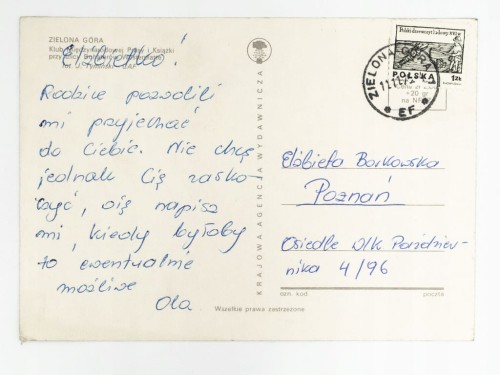 ZIELONA GÓRA
Klub Międzynarodowej Prasy i Książki
przy
fot. J. Tymiński - CAF
Rodzice pozwolili
mi przyjechać
do Ciebie. Nie chcę
jednak Cię zasko-
czyć, więc napisz
mi, kiedy byłoby
to ewentualnie
możliwe
Ola
KRAJOWA AGENCJA WYDAWNICZA
Polski drzeworyt ludowy XVI w.
POLSKA
1 zł
ZIELONA GÓRA
EF
+20 gr
Elżbieta Borkowska
Poznań
Osiedle Wlk Paździer-
nika 4/96
dom. kod.
poczta
Wszelkie prawa zastrzeżone